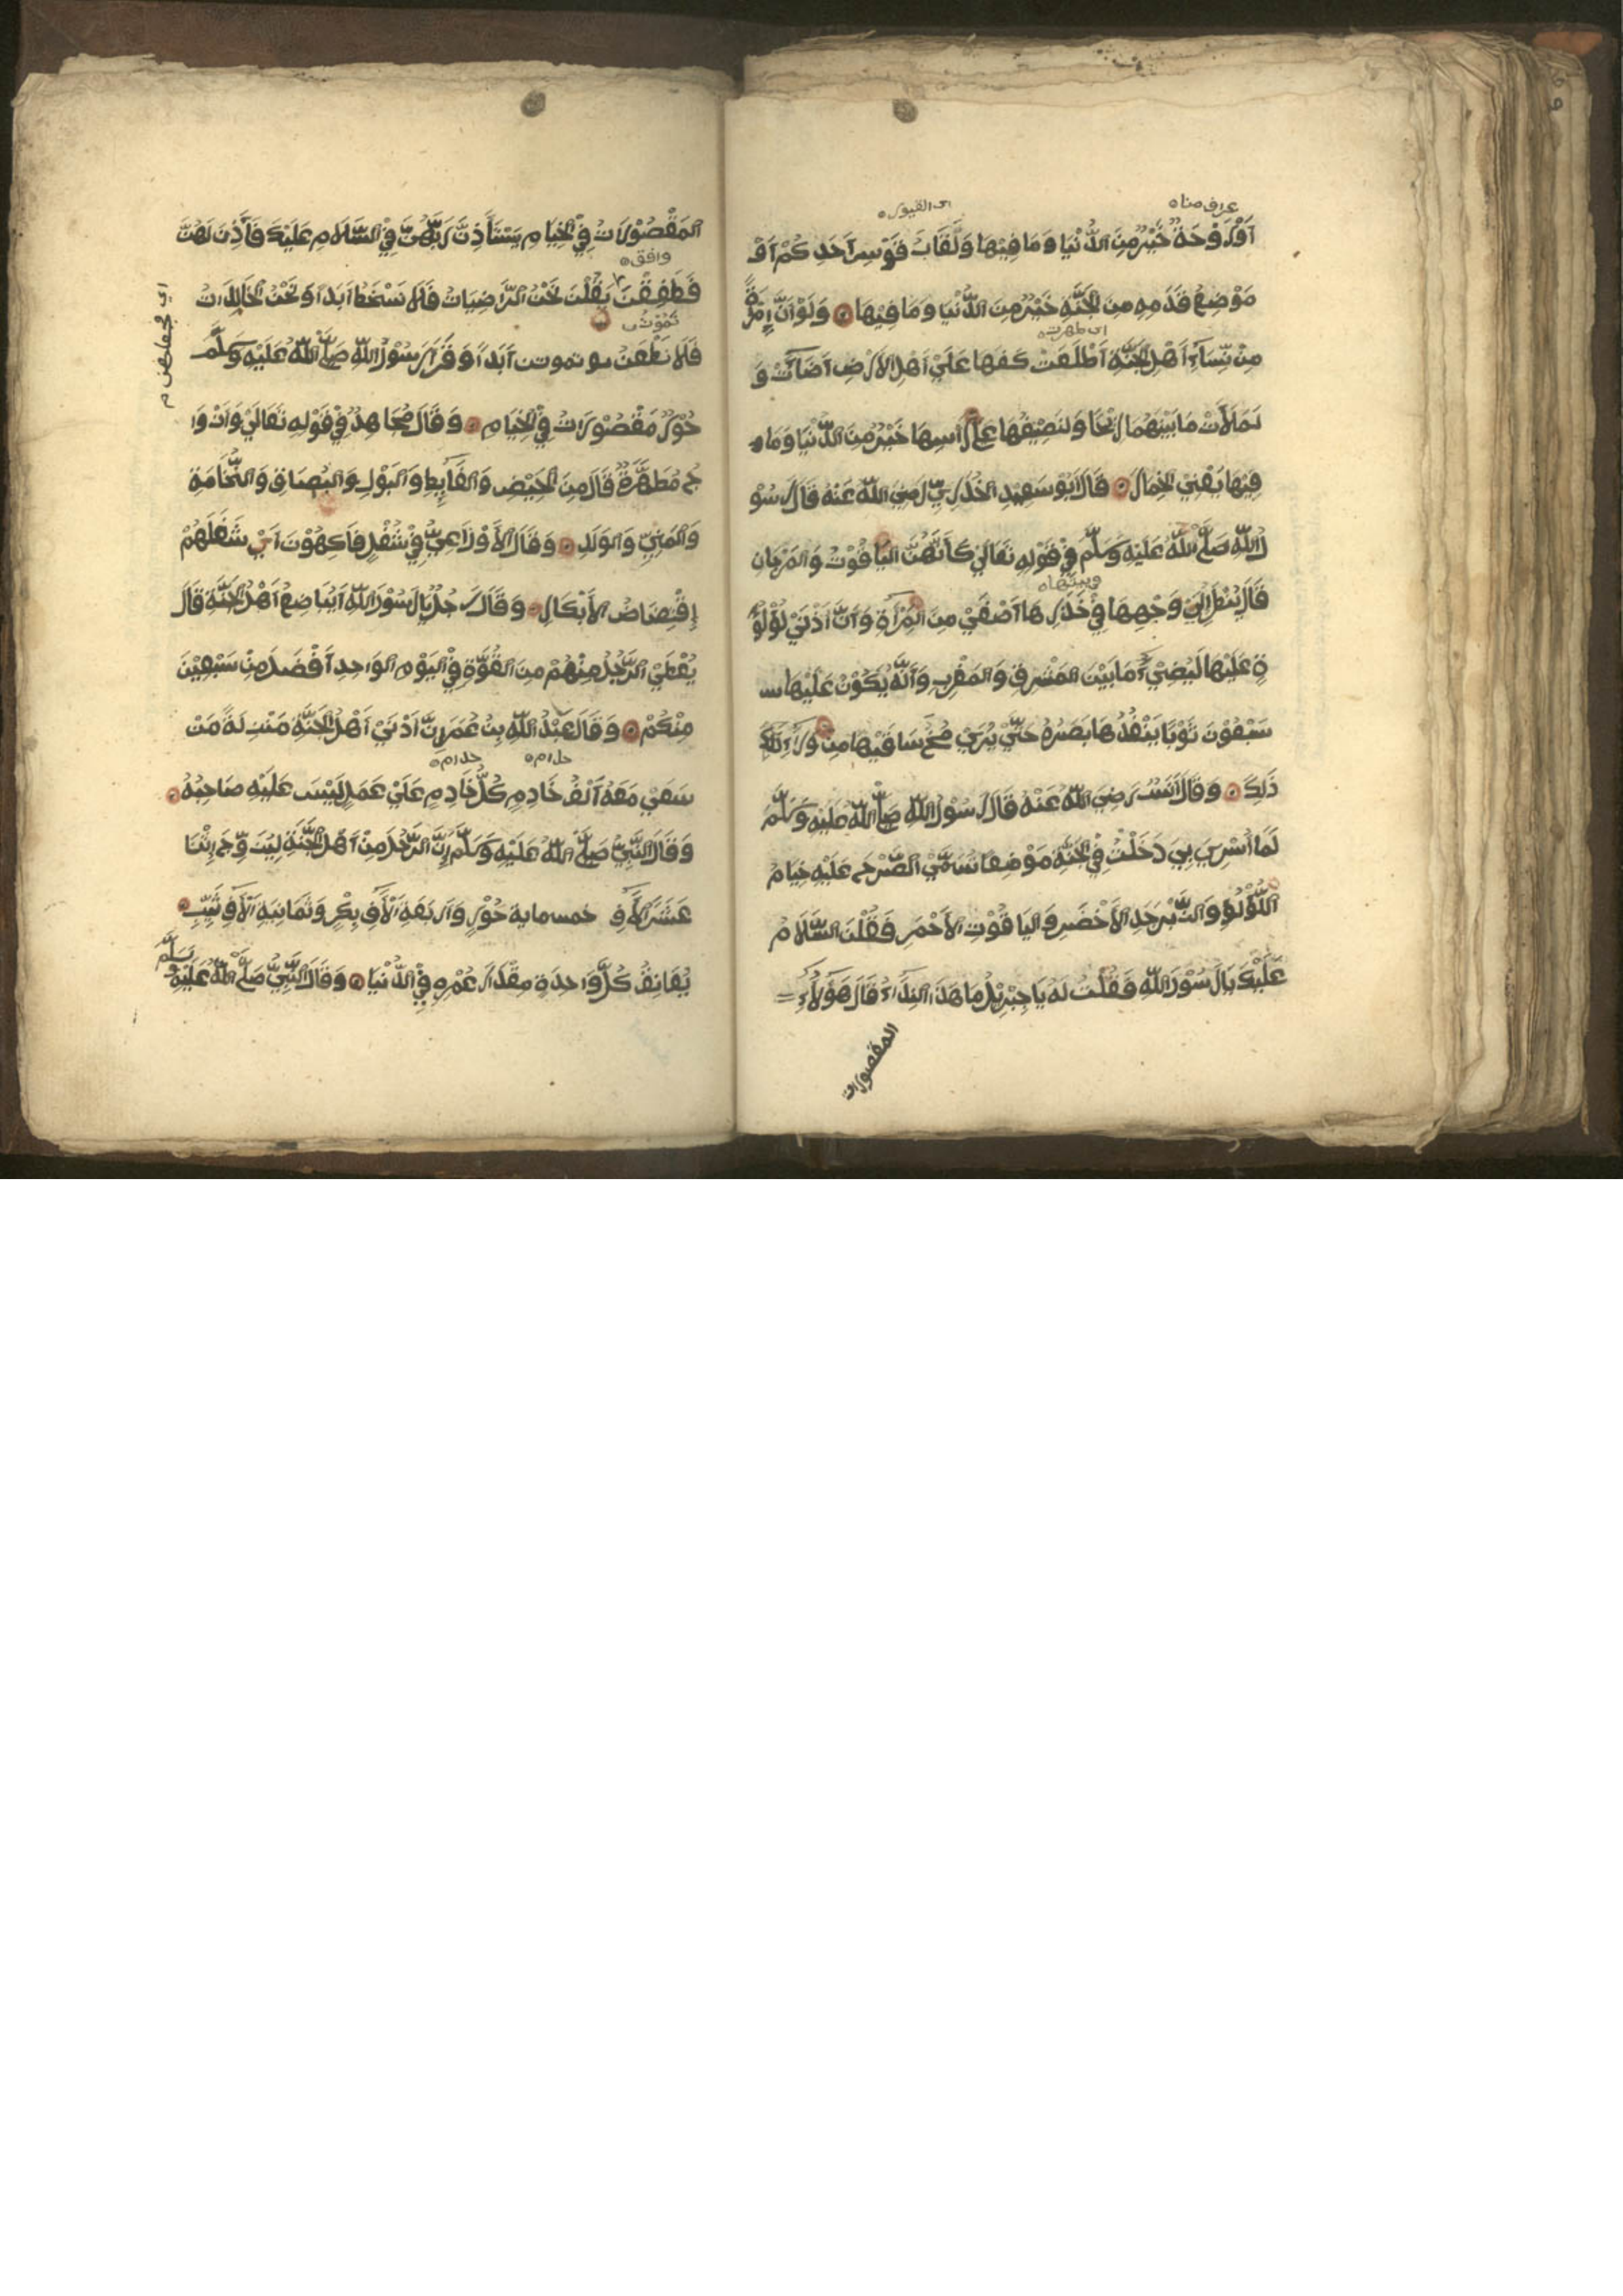 عراف منا
اى القبور
اَوْرَوْحَةٌ خَيْرٌ مِنَ الدُّنْيَا وَمَا فِيْهَا وَلَقَابَ قَوْسِ اَحَدِكُمْ اَوْ
مَوْضِعُ قَدَمِهِ مِنَ الجَنَّةِ خَيْرٌ مِنَ الدُّنْيَا وَمَا فِيْهَا وَلَوْ اَنَّ اِمْرَةً
اى ظهرت
مِنْ نِّسَاءِ اَهْلِ الجَنَّةِ اَطْلَعَتْ كَفَهَا عَلَيْ اَهْلِ الاَرْضِ اَضَاتْ وَ
لَمَلَأَتْ مَا بَيْنَهُمَا رِيْحًا وَلَنَصِيْفُهَا عَلَى رَأْسِهَا خَيْرٌ مِنَ الدُّنْيَا وَمَا
فِيْهَا يَعْنِيْ الخِمَارَ وَقَالَ اَبُوْ سَعِيْدِ الخُدْرِيّ رَضِيَ اللّٰهُ عَنْهُ قَالَ رَسُوْ
لُ اللّٰهِ صَلَّي اللّٰهُ عَلَيْهِ وَسَلَّمَ فِيْ قَوْلِهِ تَعَالَيْ كَاَنَّهُنَّ اليَاقُوْتُ وَالمَرْجَانِ
وبيتها
قَالَ يُنْظَرُ اِلَيْ وَجْهِهَا فِيْ خَدْرِهَا اَصْفَيْ مِنَ المِرْأَةِ وَاَنَّ اَدْنَيْ لُؤْلُؤَ
ةٍ عَلَيْهَا لَيُضِيْءُ مَا بَيْنَ المَشْرِقِ وَالمَغْرِبِ وَاَنَّهُ يَكُوْنُ عَلَيْهَا
سَبْعُوْنَ ثَوْبًا يَنْفُذُهَا بَصَرُهُ حَتَّيْ يُرَيْ مُخُّ سَاقَيْهَا مِنْ وَرَاءِ
ذَلِكَ وَقَالَ اَنَسْ رَضِيَ اللّٰهُ عَنْهُ قَالَ رَسُوْلُ اللّٰهِ صَلَّي اللّٰهُ عَلَيْهِ وَسَلَّمَ
لَمَّا اُسْرِيَ بِيْ دَخَلْتُ فِيْ الجَنَّةِ مَوْضِعًا تُسَمَّيْ الصَّرْحَ عَلَيْهِ خِيَامُ
اللُّؤْلُؤِ وَالزَّبْرَجَدِ الاَخْضَرِ وَاليَاقُوْتِ الاَحْمَرِ فَقُلْنَ السَّلَامُ
عَلَيْكَ يَا رَسُوْلَ اللّٰهِ فَقُلْتُ لَهُ يَا جِبْرِيْلُ مَا هَذَا النِّدَاءُ قَالَ هَؤُلَاءِ
المقصورات
المَقْصُوْرَاتُ فِيْ الخِيَامِ يَسْتَأْذِنَّ رَبَّهُنَّ فِيْ السَّلَامِ عَلَيْكَ فَأَذِنَ لَهُنَّ
وافق
فَطَفِقْنَ يَقُلْنَ نَحْنُ الرَّاضِيَاتُ فَلَا نَسْخَطُ اَبَدًا وَنَحْنُ الخَالِدَاتُ
فَلَا نَظْعَنُ تموت اَبَدًا وَقَرَأَ رَسُوْلُ اللّٰهِ صَلَّي اللّٰهُ عَلَيْهِ وَسَلَّمَ
حُوْرٌ مَقْصُوْرَاتٌ فِيْ الخِيَامِ وَقَالَ مُجَاهِدٌ فِيْ قَوْلِهِ تَعَالَيْ وَاَزْوَا
جٌ مُطَهَّرَةٌ قَالَ مِنَ الحَيْضِ وَالغَايِطِ وَالبَوْلِ وَالبُصَاقِ وَالنُّخَامَةِ
وَالمَنِيِّ وَالوَلَدِ وَقَالَ الاَوْزَاعِيُّ فِيْ شُغْلٍ فَاكِهُوْنَ اَيْ شَغَلَهُمْ
اِفْتِضَاضُ الاَبْكَارِ وَقَالَ رَجُلٌ يَا رَسُوْلَ اللّٰهِ اَيُبَاضِعُ اَهْلُ الجَنَّةِ قَالَ
يُعْطَيْ الرَّجُلُ مِنْهُمْ مِنَ القُوَّةِ فِيْ اليَوْمِ الوَاحِدِ اَفْضَلَ مِنْ سَبْعِيْنَ
مِنْكُمْ وَقَالَ عَبْدُ اللّٰهِ بِنْ عُمَرَ اِنَّ اَدْنَيْ اَهْلِ الجَنَّةِ مَنْزِلَةً مَنْ
سَعَيْ مَعَهُ اَلْفُ خَادِمٍ كُلُّ خَادِمٍ عَلَيْ عَمَلٍ لَيْسَ عَلَيْهِ صَاحِبُهُ
وَقَالَ النَّبِيُّ صَلَّي اللّٰهُ عَلَيْهِ وَسَلَّمَ اِنَّ الرَّجُلَ مِنْ اَهْلِ الجَنَّةِ لِيُزَوِّجَ
خمسماية حُوْرٍ وَاَرْبَعَةَ اٰلَافِ بِكْرٍ وَثَمَانِيَةَ اٰلَافِ ثَيِّبٍ
يُعَانِقُ كُلَّ وَاحِدَةٍ مِقْدَارَ عُمْرِهِ فِيْ الدُّنْيَا وَقَالَ النَّبِيُّ صَلَّي اللّٰهُ عَلَيْهِ وَسَلَّمَ